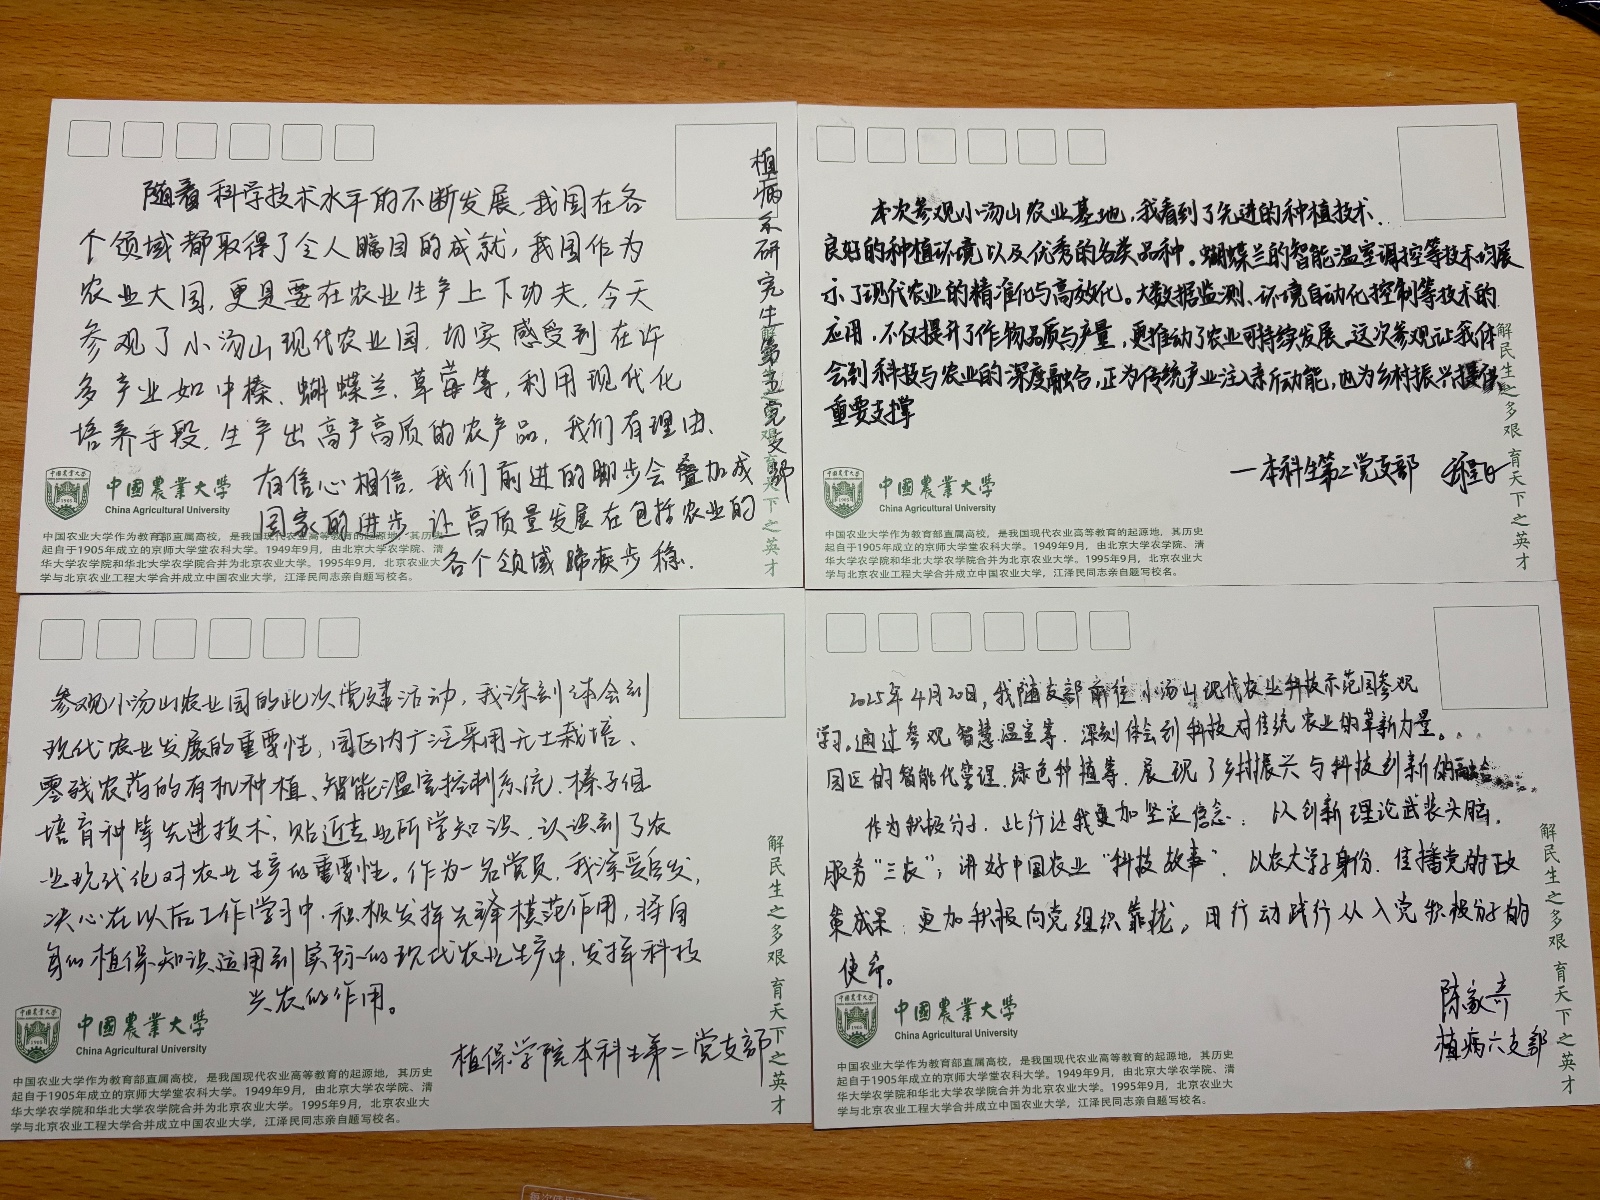 随着科学技术水平的不断发展,我国在各
个领域都取得了令人瞩目的成就,我国作为
农业大国,更是要在农业生产上下功夫,今天
参观了小汤山现代农业园,切实感受到在许
多产业如中榛、蝴蝶兰、草莓等,利用现代化
培养手段,生产出高产高质的农产品,我们有理由、
有信心相信,我们前进的脚步会叠加成
国家的进步,让高质量发展在包括农业的
各个领域蹄疾步稳.
植病系研究生第五党支部
中国農業大学
China Agricultural University
中国农业大学作为教育部直属高校,是我国现代农业高等教育的起源地,其历史
起自于1905年成立的京师大学堂农科大学。1949年9月,由北京大学农学院、清
华大学农学院和华北大学农学院合并为北京农业大学。1995年9月,北京农业大
学与北京农业工程大学合并成立中国农业大学,江泽民同志亲自题写校名。
解民生之多艰 育天下之英才
本次参观小汤山农业基地,我看到了先进的种植技术、
良好的种植环境以及优秀的各类品种。蝴蝶兰的智能温室调控等技术均展
示了现代农业的精准化与高效化。大数据监测、环境自动化控制等技术的
应用,不仅提升了作物品质与产量,更推动了农业可持续发展。这次参观让我体
会到科技与农业的深度融合,正为传统产业注入新动能,也为乡村振兴提供
重要支撑
一本科生第二党支部
中国農業大学
China Agricultural University
中国农业大学作为教育部直属高校,是我国现代农业高等教育的起源地,其历史
起自于1905年成立的京师大学堂农科大学。1949年9月,由北京大学农学院、清
华大学农学院和华北大学农学院合并为北京农业大学。1995年9月,北京农业大
学与北京农业工程大学合并成立中国农业大学,江泽民同志亲自题写校名。
解民生之多艰 育天下之英才
参观小汤山农业园的此次党建活动,我深刻体会到
现代农业发展的重要性,园区内广泛采用无土栽培、
零残农药的有机种植、智能温室控制系统、榛子组
培育种等先进技术,贴近专业所学知识,认识到了农
业现代化对农业生产的重要性。作为一名党员,我深受启发,
决心在以后工作学习中,积极发挥先锋模范作用,将自
身的植保知识运用到实际的现代农业生产中,发挥科技
兴农的作用。
植保学院本科生第二党支部
中国農業大学
China Agricultural University
中国农业大学作为教育部直属高校,是我国现代农业高等教育的起源地,其历史
起自于1905年成立的京师大学堂农科大学。1949年9月,由北京大学农学院、清
华大学农学院和华北大学农学院合并为北京农业大学。1995年9月,北京农业大
学与北京农业工程大学合并成立中国农业大学,江泽民同志亲自题写校名。
解民生之多艰 育天下之英才
2025年4月20日,我随支部前往小汤山现代农业科技示范园参观
学习。通过参观智慧温室等,深刻体会到科技对传统农业的革新力量。
园区的智能化管理、绿色种植等,展现了乡村振兴与科技创新的融合
作为积极分子,此行让我更加坚定信念:以创新理论武装头脑,
服务“三农”;讲好中国农业“科技故事”,以农大学子身份,传播党的政
策成果;更加积极向党组织靠拢,用行动践行从入党积极分子的
使命。
陈家奇
植病六支部
中国農業大学
China Agricultural University
中国农业大学作为教育部直属高校,是我国现代农业高等教育的起源地,其历史
起自于1905年成立的京师大学堂农科大学。1949年9月,由北京大学农学院、清
华大学农学院和华北大学农学院合并为北京农业大学。1995年9月,北京农业大
学与北京农业工程大学合并成立中国农业大学,江泽民同志亲自题写校名。
解民生之多艰 育天下之英才